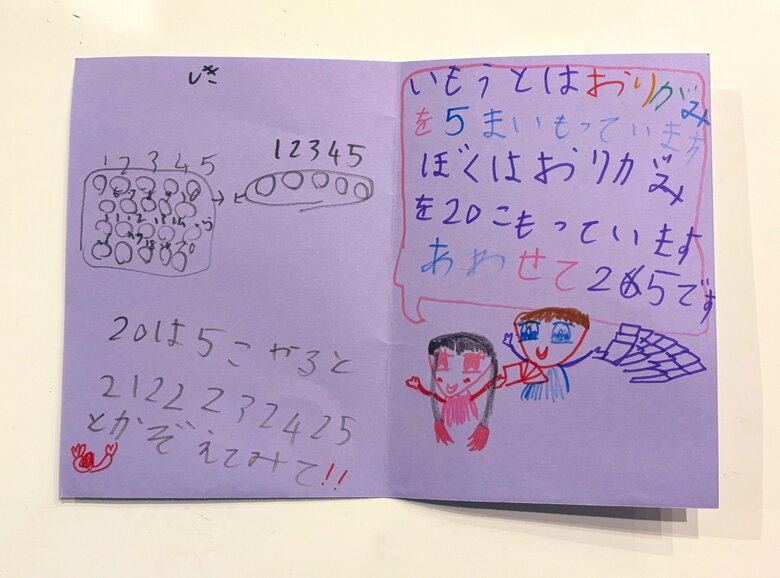 しき
1 2 3 4 5
1 2 3 4 5
20は5こやると
21 22 23 24 25
とかぞえてみて!!
いもうとはおりがみ
を5まいもっています
ぼくはおりがみ
を20こもっています
あわせて25です